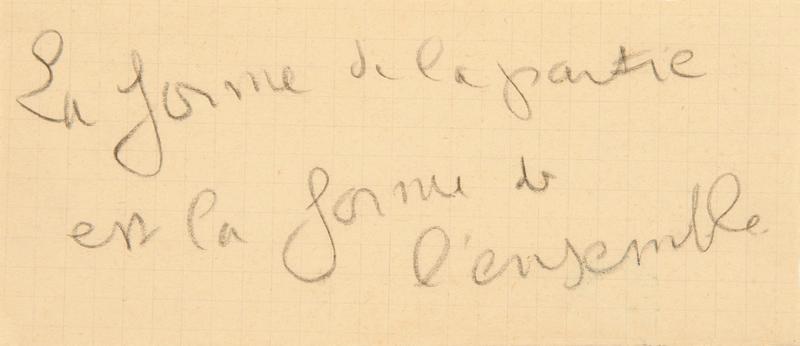 La forme de la partie
est la forme de
l'ensemble